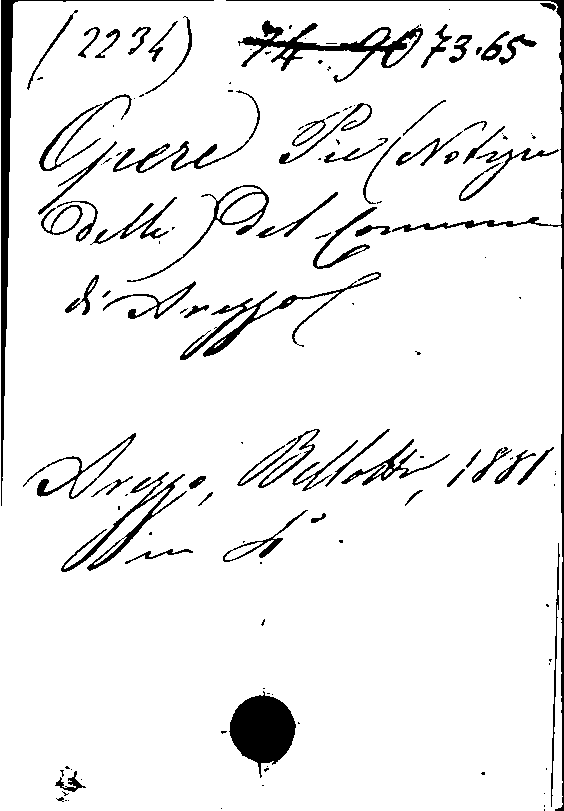 (2234) 74. 90 73.65
Opere Pie (Notizie
delle) del Comune
di Arezzo(
Arezzo, Bellotti, 1881
in 4°.